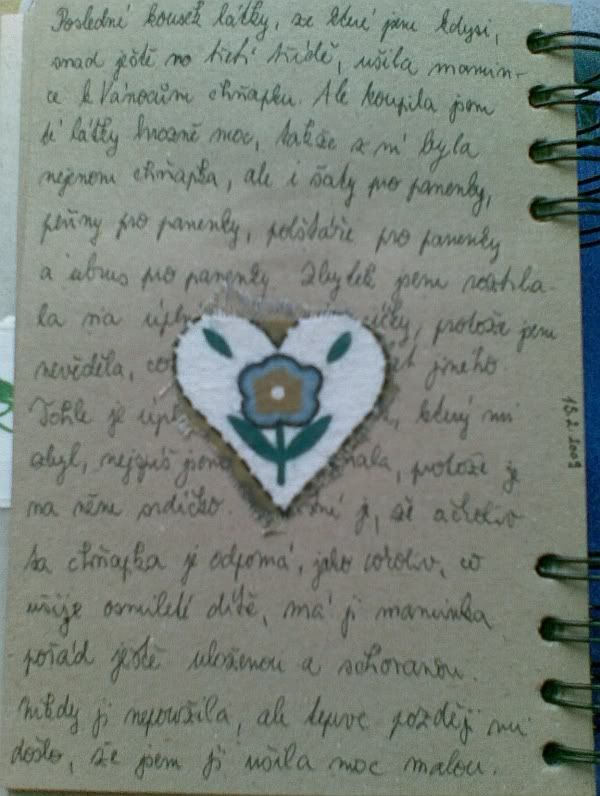 Poslední kousek látky, ze které jsem kdysi,
snad ještě ve třetí třídě, ušila mamin-
ce k Vánocům chňapku. Ale koupila jsem
té látky hrozně moc, takže z ní byla
nejenom chňapka, ale i šaty pro panenky,
peřiny pro panenky, polštáře pro panenky
a ubrus pro panenky. Zbytek jsem rozstříha-
la na úpl protože jsem
nevěděla, co jiného.
Tohle je který mi
zbyl, nejspíš protože je
na něm srdíčko. je, že ačkoliv
ta chňapka je odporná, jako cokoliv, co
ušije osmileté dítě, má ji maminka
pořád ještě uloženou a schovanou.
Nikdy ji nepoužila, ale teprve později mi
došlo, že jsem ji ušila moc malou.
15.2.2009